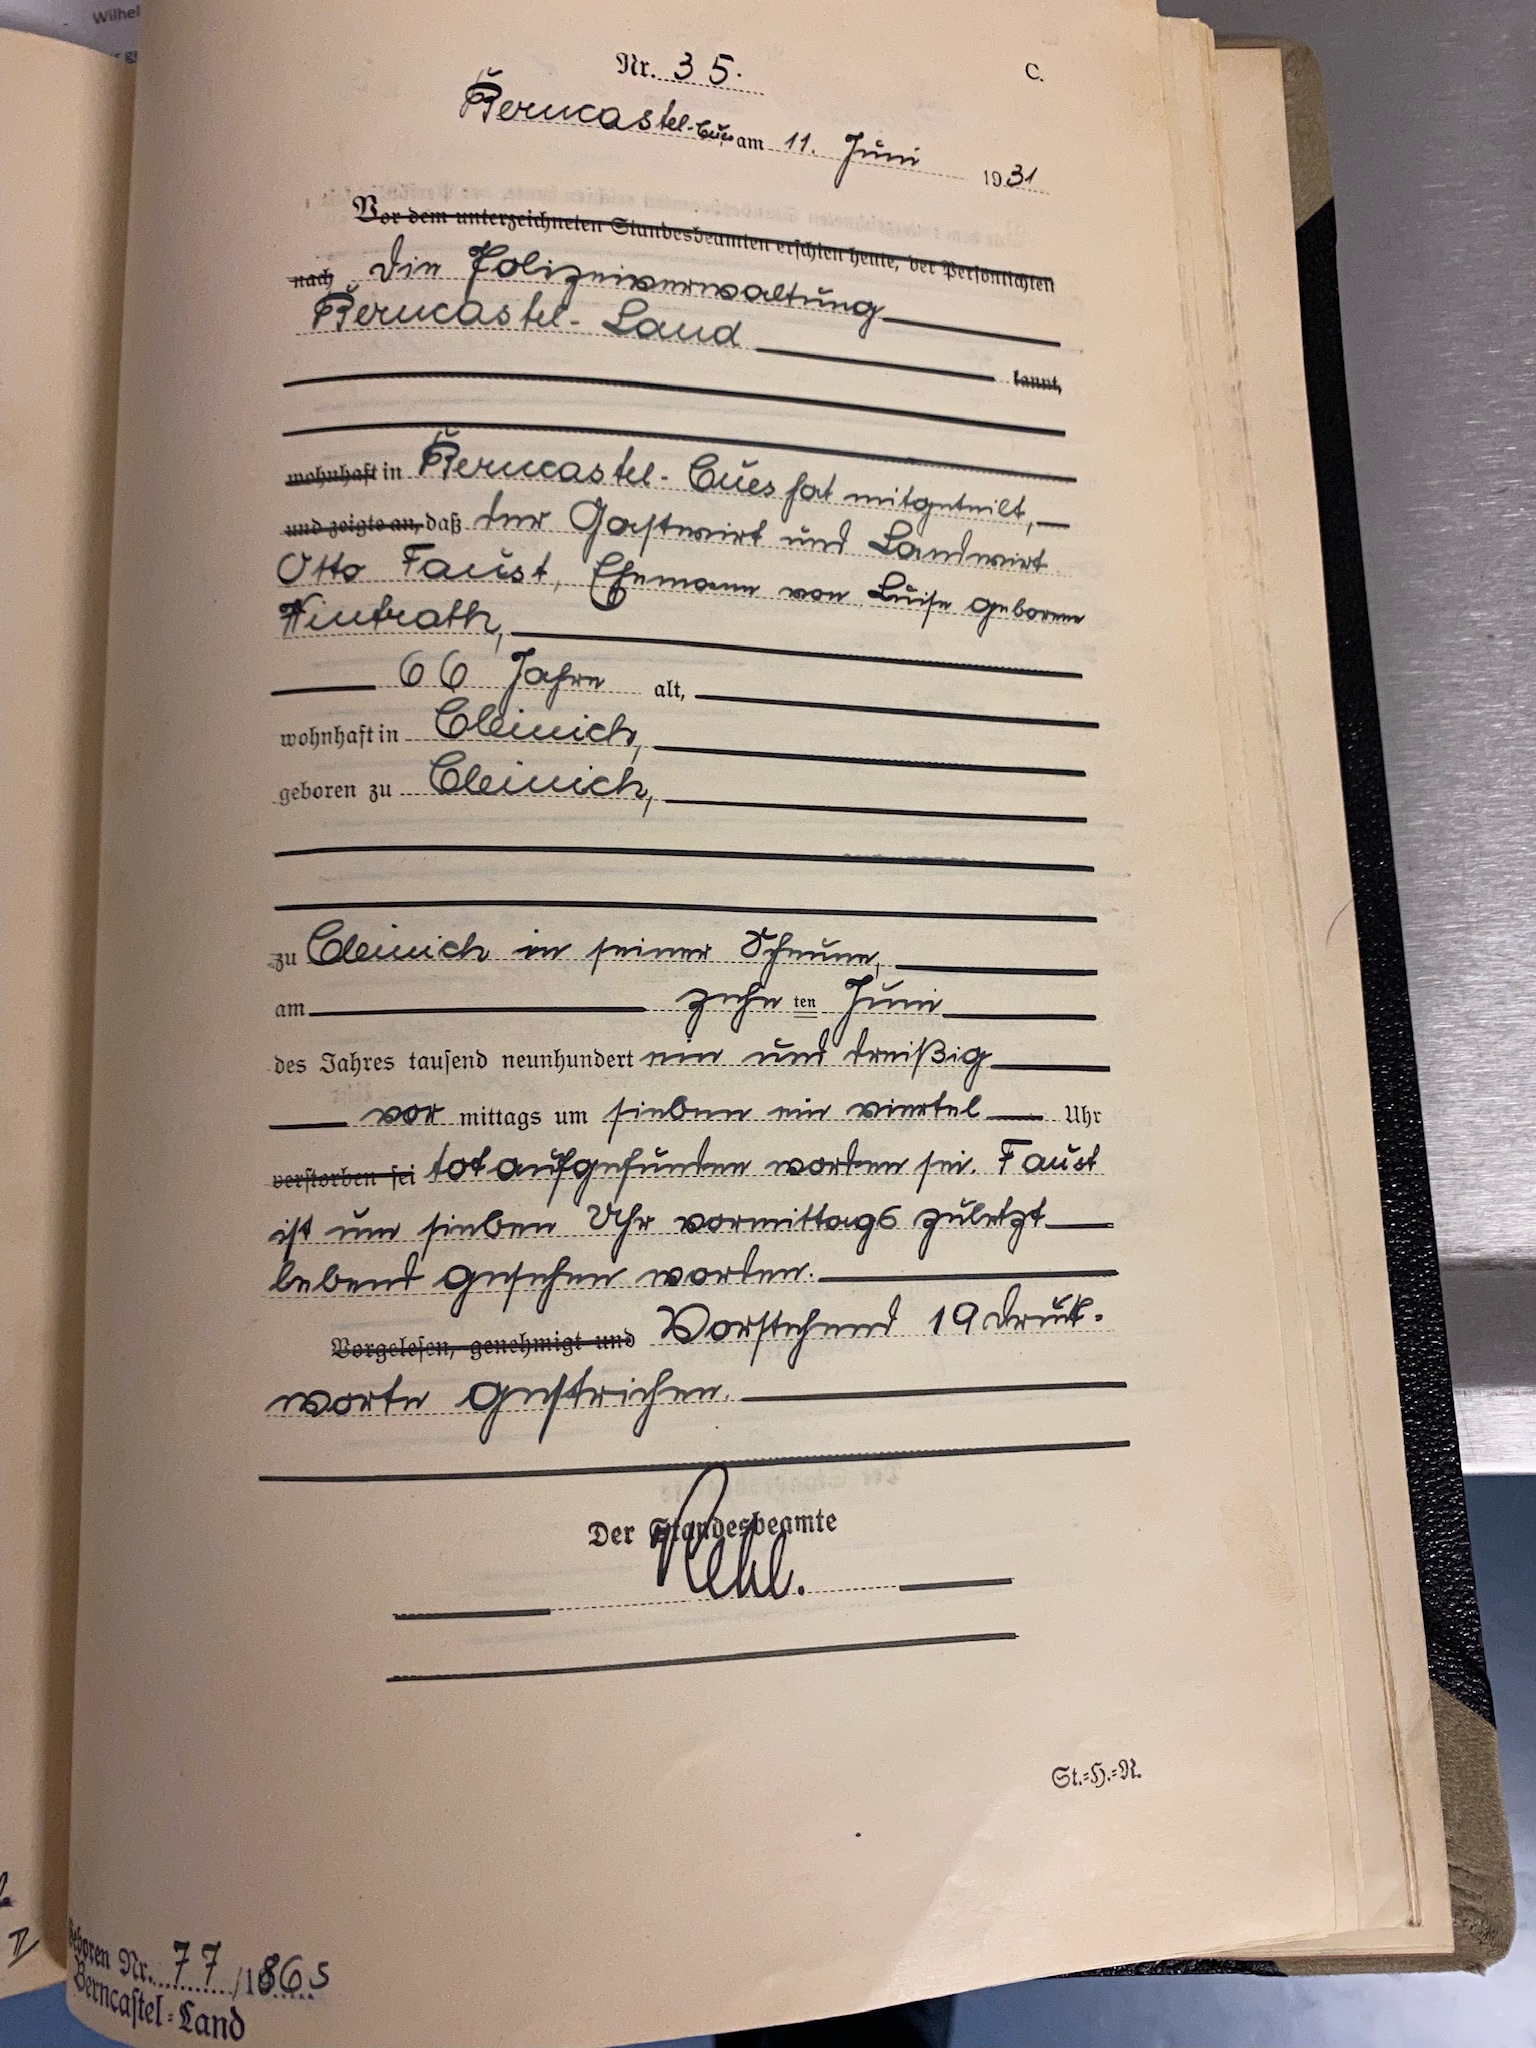 Wilhel
Nr. 35.
C.
Berncastel-Cues am 11. Juni 1931
Vor dem unterzeichneten Standesbeamten erschien heute, der Persönlichkeit
nach die Polizeiverwaltung
Berncastel-Land
kannt,
wohnhaft in Berncastel-Cues hat mitgeteilt,
und zeigte an, daß der Gastwirt und Landwirt
Otto Faust, Ehemann von Luise geborene
Wintrath,
66 Jahre alt,
wohnhaft in Cleinich,
geboren zu Cleinich,
zu Cleinich in seiner Scheune,
am zehn ten Juni
des Jahres tausend neunhundert ein und dreißig
vor mittags um sieben ein viertel Uhr
verstorben sei tot aufgefunden worden sei. Faust
ist um sieben Uhr vormittags zuletzt
lebend gesehen worden.
Vorgelesen, genehmigt und Vorstehend 19 Druck-
worte gestrichen.
Der Standesbeamte
St.=H.=R.
Geboren Nr. 77/1865
Berncastel=Land